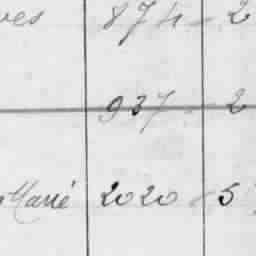 ves 874 2
937 2
Marié 2020 5